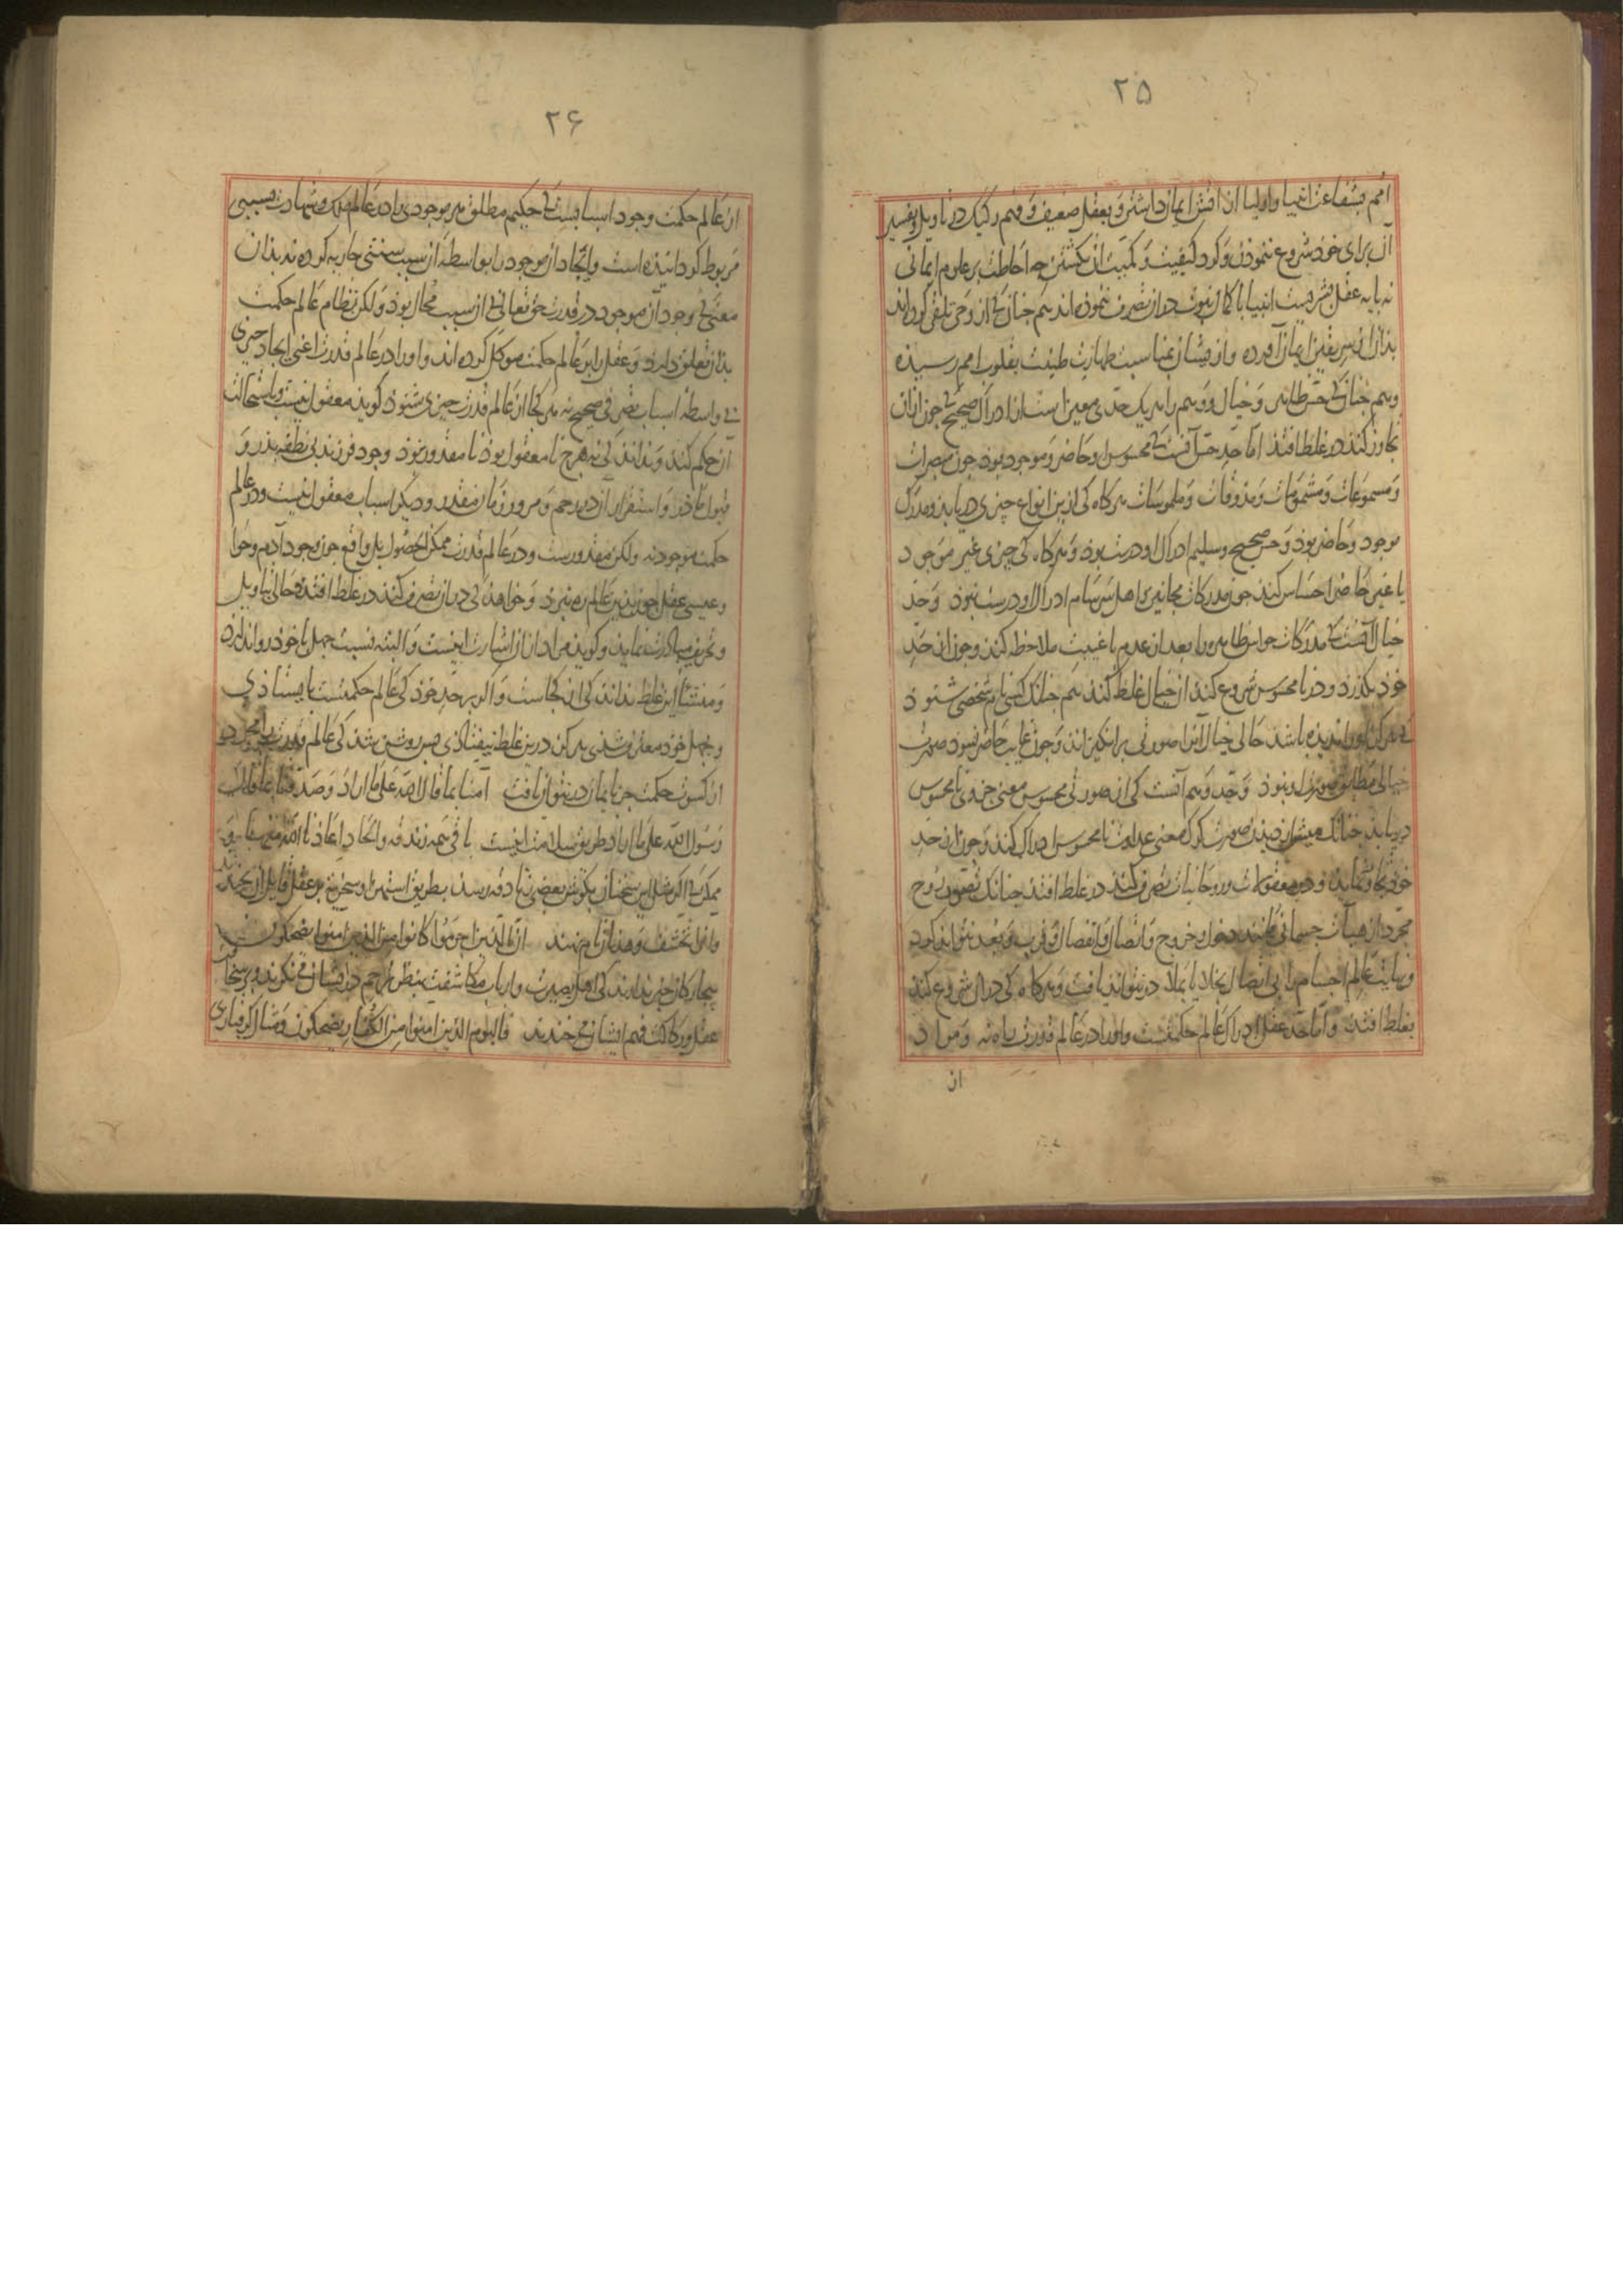 ۲۵
امم بشفاعت انبیا و اولیا ازان افتش ایمان داشتن و بعقل ضعیف و فهم رکیک در تاویل و تفسیر
آن برای خود شروع ننمودن و کرد کیفیت و کمیت آن نکشتن چه احاطت بر علوم ایمانی
نه پایه عقل بشریست انبیا با کمال نبوت در آن تصرف ننموده اند هم جنان کی از وحی تلقی کرده اند
بذان از سر یقین ایمان آورده و از یشان بمناسبت طهارت طینت بقلوب امم رسیده
و هم جنان کی حس ظاهر و خیال و وهم را هر یک حدی معین است از ادراک صحیح کی جون ازان
تجاوز کنند در غلط افتند اما حد حس آنست کی محسوس او حاضر و موجود بود جون مبصرات
و مسموعات و مشمومات و مذوقات و ملموسات هر کاه کی ازین انواع چیزی دریابد و مدرک
موجود و حاضر بود و حس صحیح و سلیم ادراک او درست بود و هر کاه کی چیزی غیر موجود
یا غیر حاضر احساس کند جون مدرکات مجانین و اهل سرسام ادراک او درست نبود و حد
خیال آنست کی مدرکات حواس ظاهر را بعد از عدم یا غیبت ملاحظه کند و جون از حد
خود بکذرد و در نا محسوس شروع کند از خیال غلط کند هم جنانک کسی نام شخصی شنود
کی هرکز او را ندیده باشد حالی خیال آنرا صورتی برانکیزاند و جون غایب حاضر شود صورت
خیالی مطابق صورت او نبود و حد وهم آنست کی از صورتی محسوس معنی جزوی نا محسوس
دریابد جنانک میش از دیدن صورت کرک معنی عداوت نا محسوس ادراک کند و جون از حد
خود تجاوز نماید و در معقولات و روحانیات تصرف کند در غلط افتد جنانک تصور روح
مجرد از هیآت جسمانی کنند دخول و خروج و اتصال و انفصال و قرب و بعد نتواند کرد
و نهایت عالم اجسام را بی اتصال بخلا یا بملا در نتواند یافت و هر کاه کی در ان شروع کند
بغلط افتد و اما حد عقل ادراک عالم حکمتست و او را در عالم قدرت راه نه و مراد
از
۲۶
از عالم حکمت وجود اسبابیست کی حکیم مطلق هر موجودی را در عالم ملک و شهادت بسببی
مربوط کردانیده است و ایجاد آن موجود را بواسطه آن سبب سنتی جاریه کرده نه بذان
معنی کی وجود آن موجود در قدرت حق تعالی بی آن سبب محال بود و لکن نظام عالم حکمت
بذان تعلق دارد و عقل را بر عالم حکمت موکل کرده اند و او را در عالم قدرت اعنی ایجاد چیزی
بی واسطه اسباب تصرفی صحیح نه هر کجا از عالم قدرت چیزی شنود کوید معقول نیست و باستحالت
آن حکم کند و نداند کی نه هرچ نا معقول بود نا مقدور بود وجود فرزند بی نطفه پدر و
قبول ماذر و استقرار آن در رحم و مرور زمان مقدر و دیکر اسباب معقول نیست و در عالم
حکمت موجود نه ولکن مقدورست و در عالم قدرت ممکن الحصول بل واقع جون وجود آدم و حوا
و عیسی عقل جون بذین عالم ره نبرد و خواهد کی در آن تصرف کند در غلط افتد و حالی بتاویل
و تحریف مبادرت نماید و کوید مراد ازان اشارت اینست و البته نسبت جهل با خود روا ندارد
و منشأ این غلط نداند کی از کجاست و اکر بر حد خود کی عالم حکمتست بایستاذی
و بجهل خود معترف شدی هرکز درین غلط نیفتاذی پس روشن شد کی عالم قدرت را مجرد
از کسوت حکمت جز بایمان در نتوان یافت آمنا بما قال الله علی ما اراد و صدقنا بما قال
رسول الله علی ما اراد طریق سلامت اینست باقی همه زندقه و الحاد اعاذنا الله منهما
ممکن کی اکر مثل این سخنان بکوش بعضی زنادقه رسد بطریق استهزا و سخریت بر عقل قایل آن بخندند
و آنرا تخشف و هذیان نام نهند ان الذین اجرموا کانوا من الذین امنوا یضحکون
بیجارکان خبر ندارند کی اهل بصیرت و ارباب مکاشفت بنظر ترحم در ایشان می نکرند و بر سخافت
عقل و رکاکت فهم ایشان می خندند فالیوم الذین امنوا من الکفار یضحکون و مثال کرفتاری